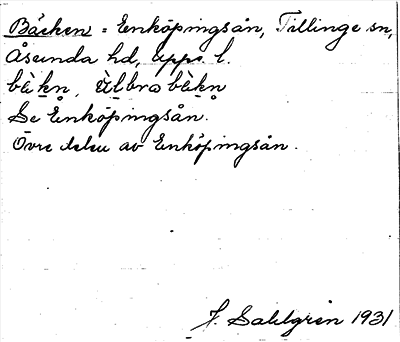 Bäcken = Enköpingsån, Tillinge sn,
Åsunda hd, Upps. l.
bèkn, ùlbro bèkn
Se Enköpingsån.
Övre delen av Enköpingsån.
J. Sahlgren 1931